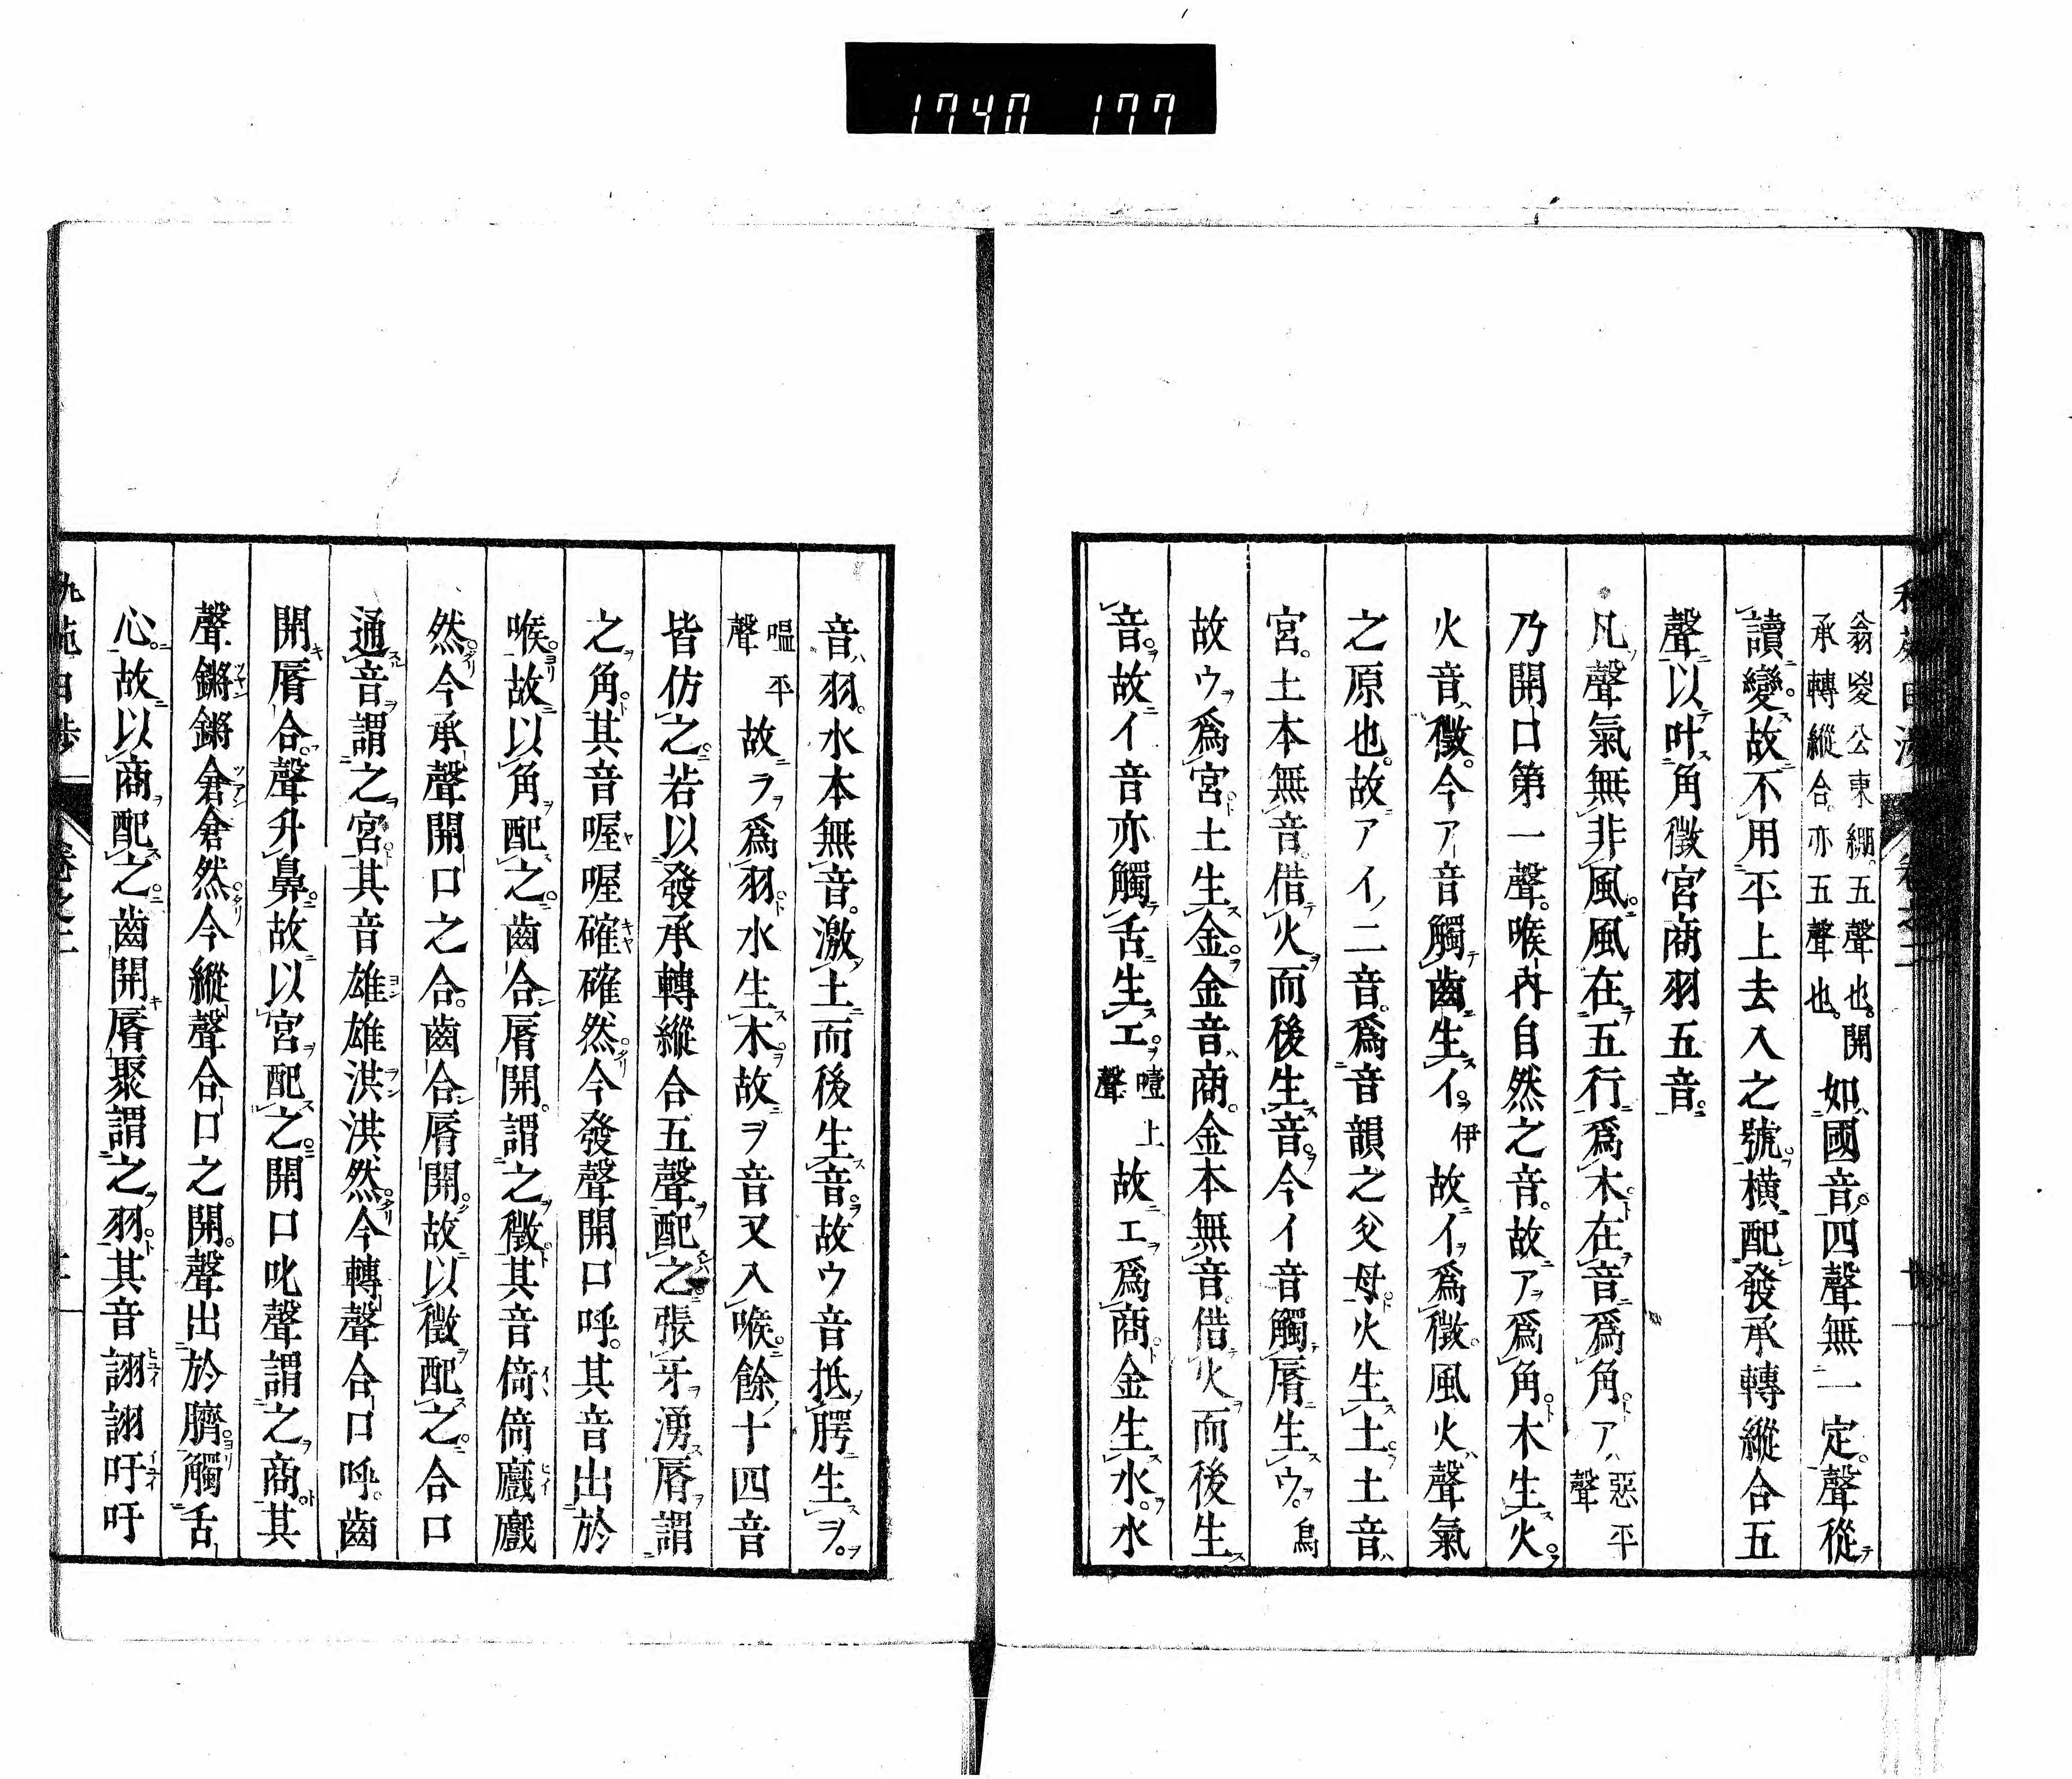 1740 177
翁㚇公東綳五聲也開
承轉縱合亦五聲也
如國音四聲無一定聲從
讀變故不用平上去入之號橫配發承轉縱合五
聲以叶角徵宮商羽五音
凡聲氣無非風風在五行爲木在音爲角ア惡平聲
乃開口第一聲喉內自然之音故ア爲角木生火
火音徵今ア音觸齒生イ伊故イ爲徵風火聲氣
之原也故アイ二音爲音韻之父母火生土土音
宮土本無音借火而後生音今イ音觸脣生ウ烏
故ウ爲宮土生金金音商金本無音借火而後生
音故イ音亦觸舌生エ噎上聲故エ爲商金生水水
音羽水本無音激土而後生音故ウ音抵腭生ヲ
嗢平聲故ヲ爲羽水生木故ヲ音又入喉餘十四音
皆仿之若以發承轉縱合五聲配之張牙湧脣謂
之角其音喔喔確確然今發聲開口呼其音出於
喉故以角配之齒合脣開謂之徵其音倚倚戲戲
然今承聲開口之合齒合脣開故以徵配之合口
通音謂之宮其音雄雄洪洪然今轉聲合口呼齒
開脣合聲升鼻故以宮配之開口叱聲謂之商其
聲鏘鏘倉倉然今縱聲合口之開聲出於臍觸舌
心故以商配之齒開脣聚謂之羽其音詡詡吁吁
卷之二